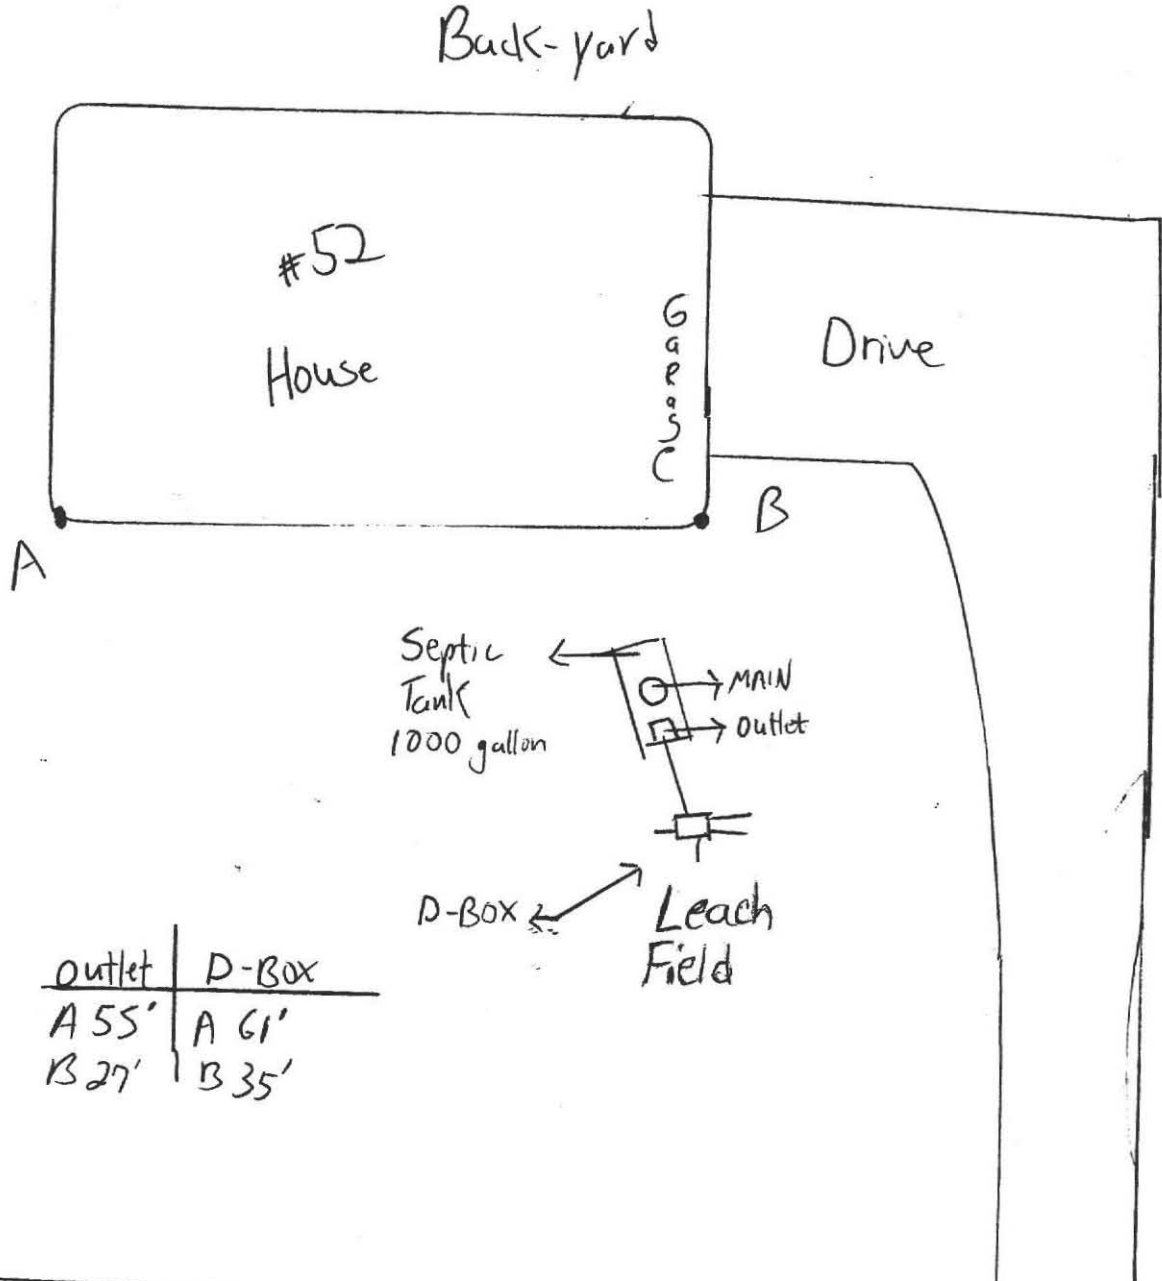 Back-yard
#52
House
Garage
Drive
A
B
Septic
Tank
1000 gallon
MAIN
outlet
D-BOX
Leach
Field
outlet D-BOX
A 55' A 61'
B 27' B 35'